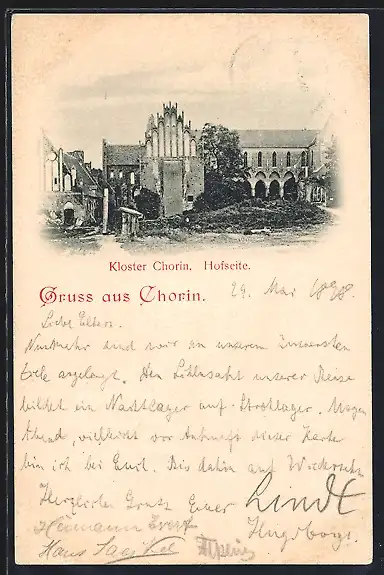 Kloster Chorin. Hofseite.
Gruss aus Chorin.
29. Mai 1898.
Liebe Eltern.
Nunmehr sind wir an unserem
Ziele angelangt. Den unserer Reise
bildet ein Nachtlager auf Strohlager. Morgen
Abend, vielleicht vor Ankunft dieser Karte
bin ich bei Euch. Bis dahin auf Wiedersehn
Herzlichen Gruß Euer
Hermann
Hans